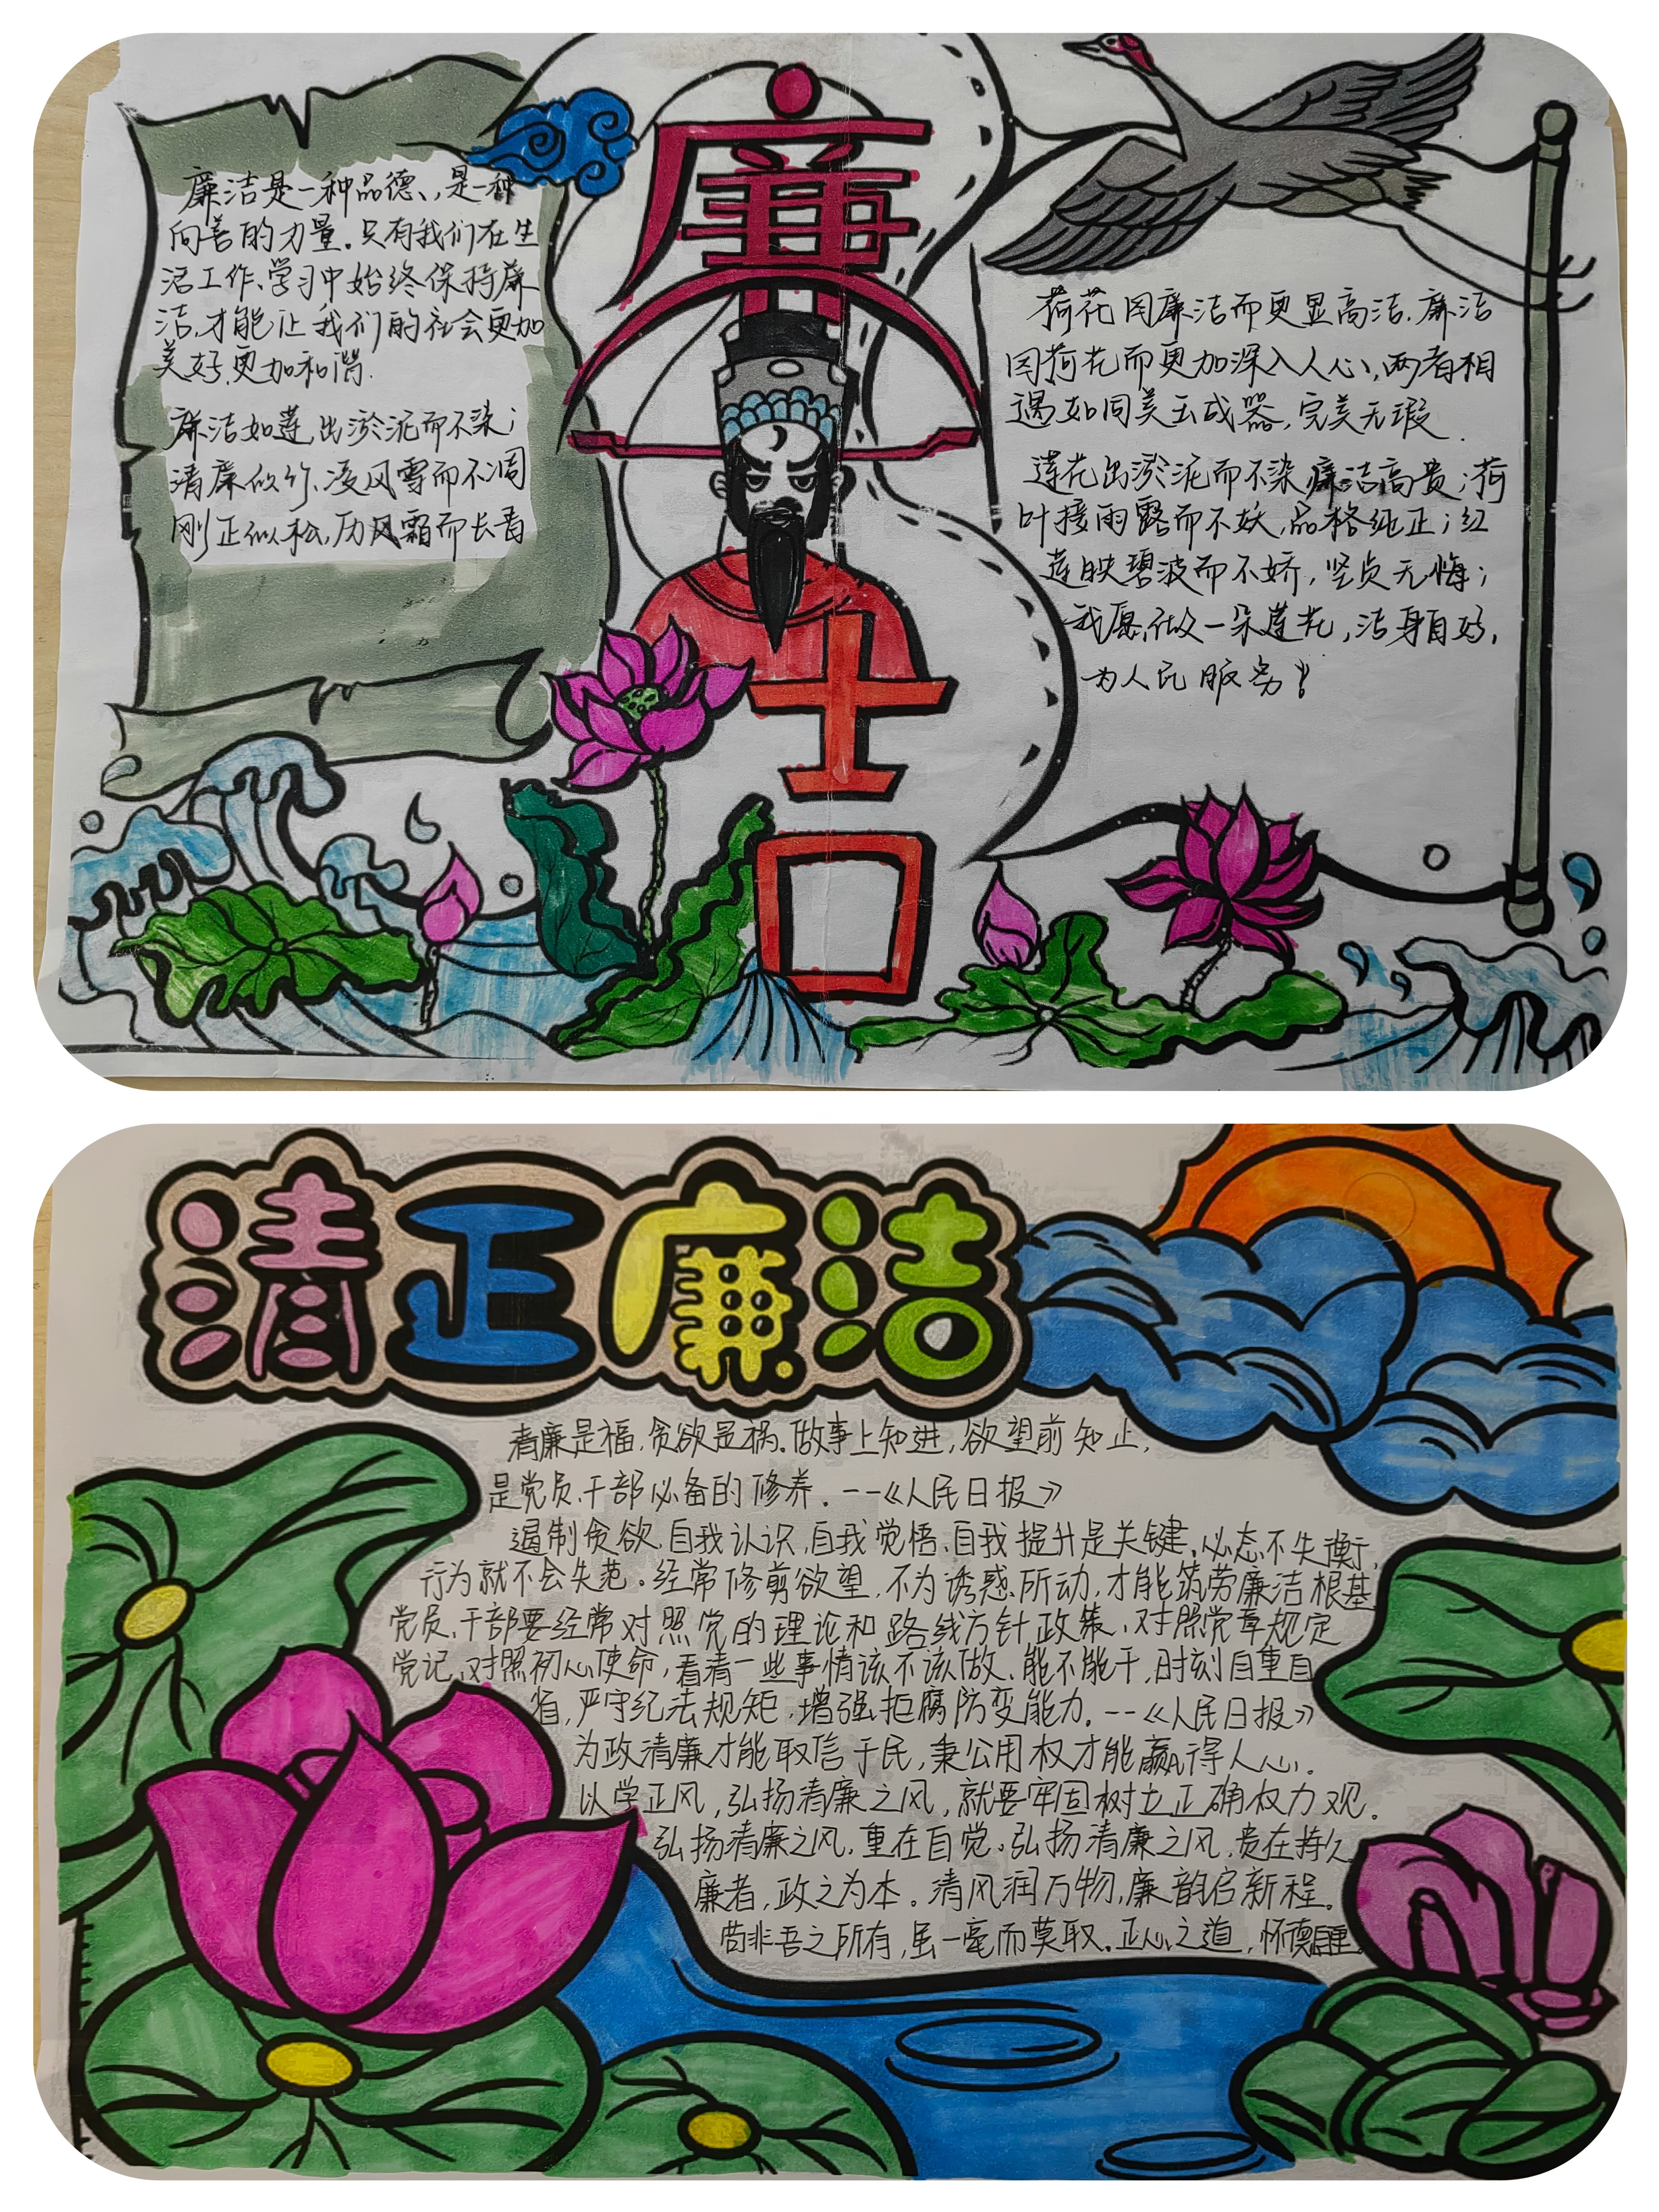 廉洁
廉洁是一种品德、是一种
向善的力量.只有我们在生
活工作、学习中始终保持廉
洁,才能让我们的社会更加
美好,更加和谐.
廉洁如莲,出淤泥而不染;
清廉似竹、凌风雪而不凋
刚正似松,历风霜而长青
荷花因廉洁而更显高洁.廉洁
因荷花而更加深入人心,两者相
遇如同美玉成器,完美无瑕.
莲花出淤泥而不染,廉洁高贵;荷
叶接雨露而不妖,品格纯正;红
莲映碧波而不娇,坚贞无悔;
我愿做一朵莲花,洁身自好,
为人民服务!
清正廉洁
清廉是福,贪欲是祸.做事上知进,欲望前知止,
是党员、干部必备的修养.--《人民日报》
遏制贪欲,自我认识,自我觉悟、自我提升是关键.心态不失衡,
行为就不会失范。经常修剪欲望,不为诱惑所动,才能筑劳廉洁根基.
党员、干部要经常对照党的理论和路线方针政策、对照党章规定
党记、对照初心使命,看清一些事情该不该做、能不能干,时刻自重自
省,严守纪法规矩,增强拒腐防变能力.--《人民日报》
为政清廉才能取信于民,秉公用权才能赢得人心.
以学正风,弘扬清廉之风,就要牢固树立正确权力观.
弘扬清廉之风,重在自觉。弘扬清廉之风,贵在持久.
廉者,政之为本。清风润万物,廉韵启新程.
苟非吾之所有,虽一毫而莫取.正心之道,怀德自重.